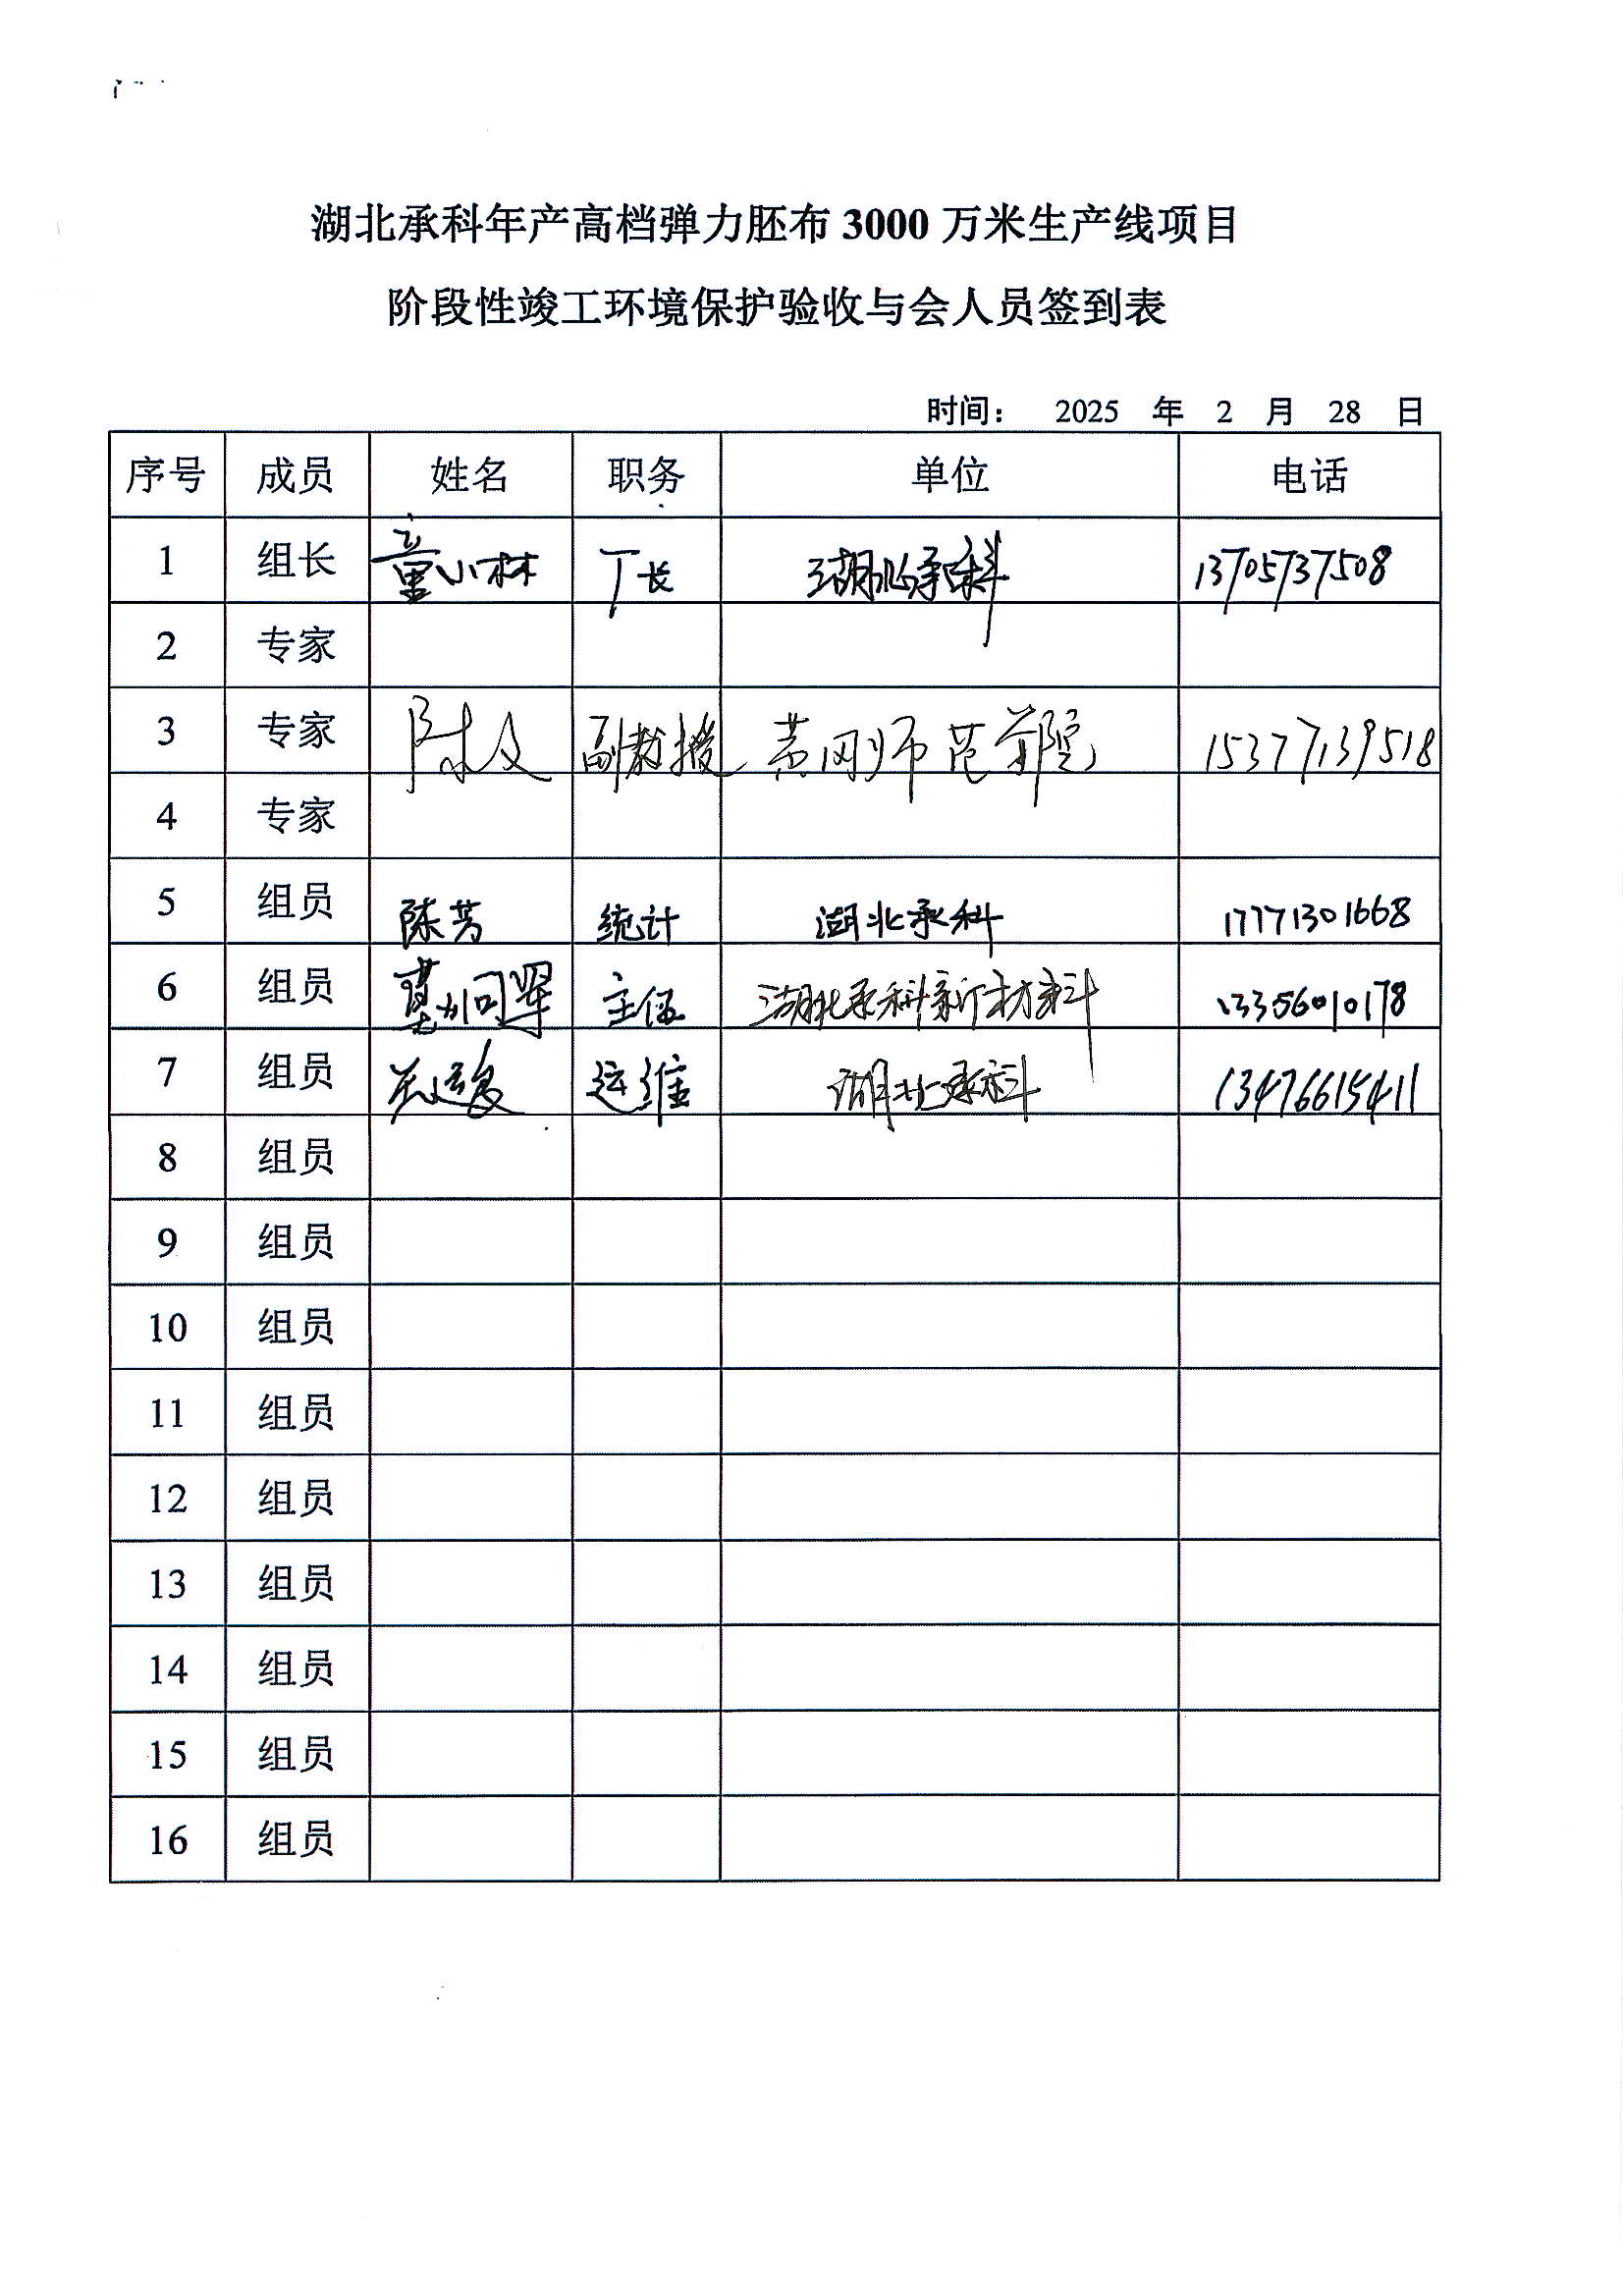 湖北承科年产高档弹力胚布 3000 万米生产线项目
阶段性竣工环境保护验收与会人员签到表
时间： 2025 年 2 月 28 日
序号 成员 姓名 职务 单位 电话
1 组长 童小林 厂长 湖北承科 13705737508
2 专家
3 专家 陈文 副教授 黄冈师范学院 15377139518
4 专家
5 组员 陈芳 统计 湖北承科 17771301668
6 组员 主任 湖北承科新材料 13356010178
7 组员 运维 湖北承科 13476615411
8 组员
9 组员
10 组员
11 组员
12 组员
13 组员
14 组员
15 组员
16 组员